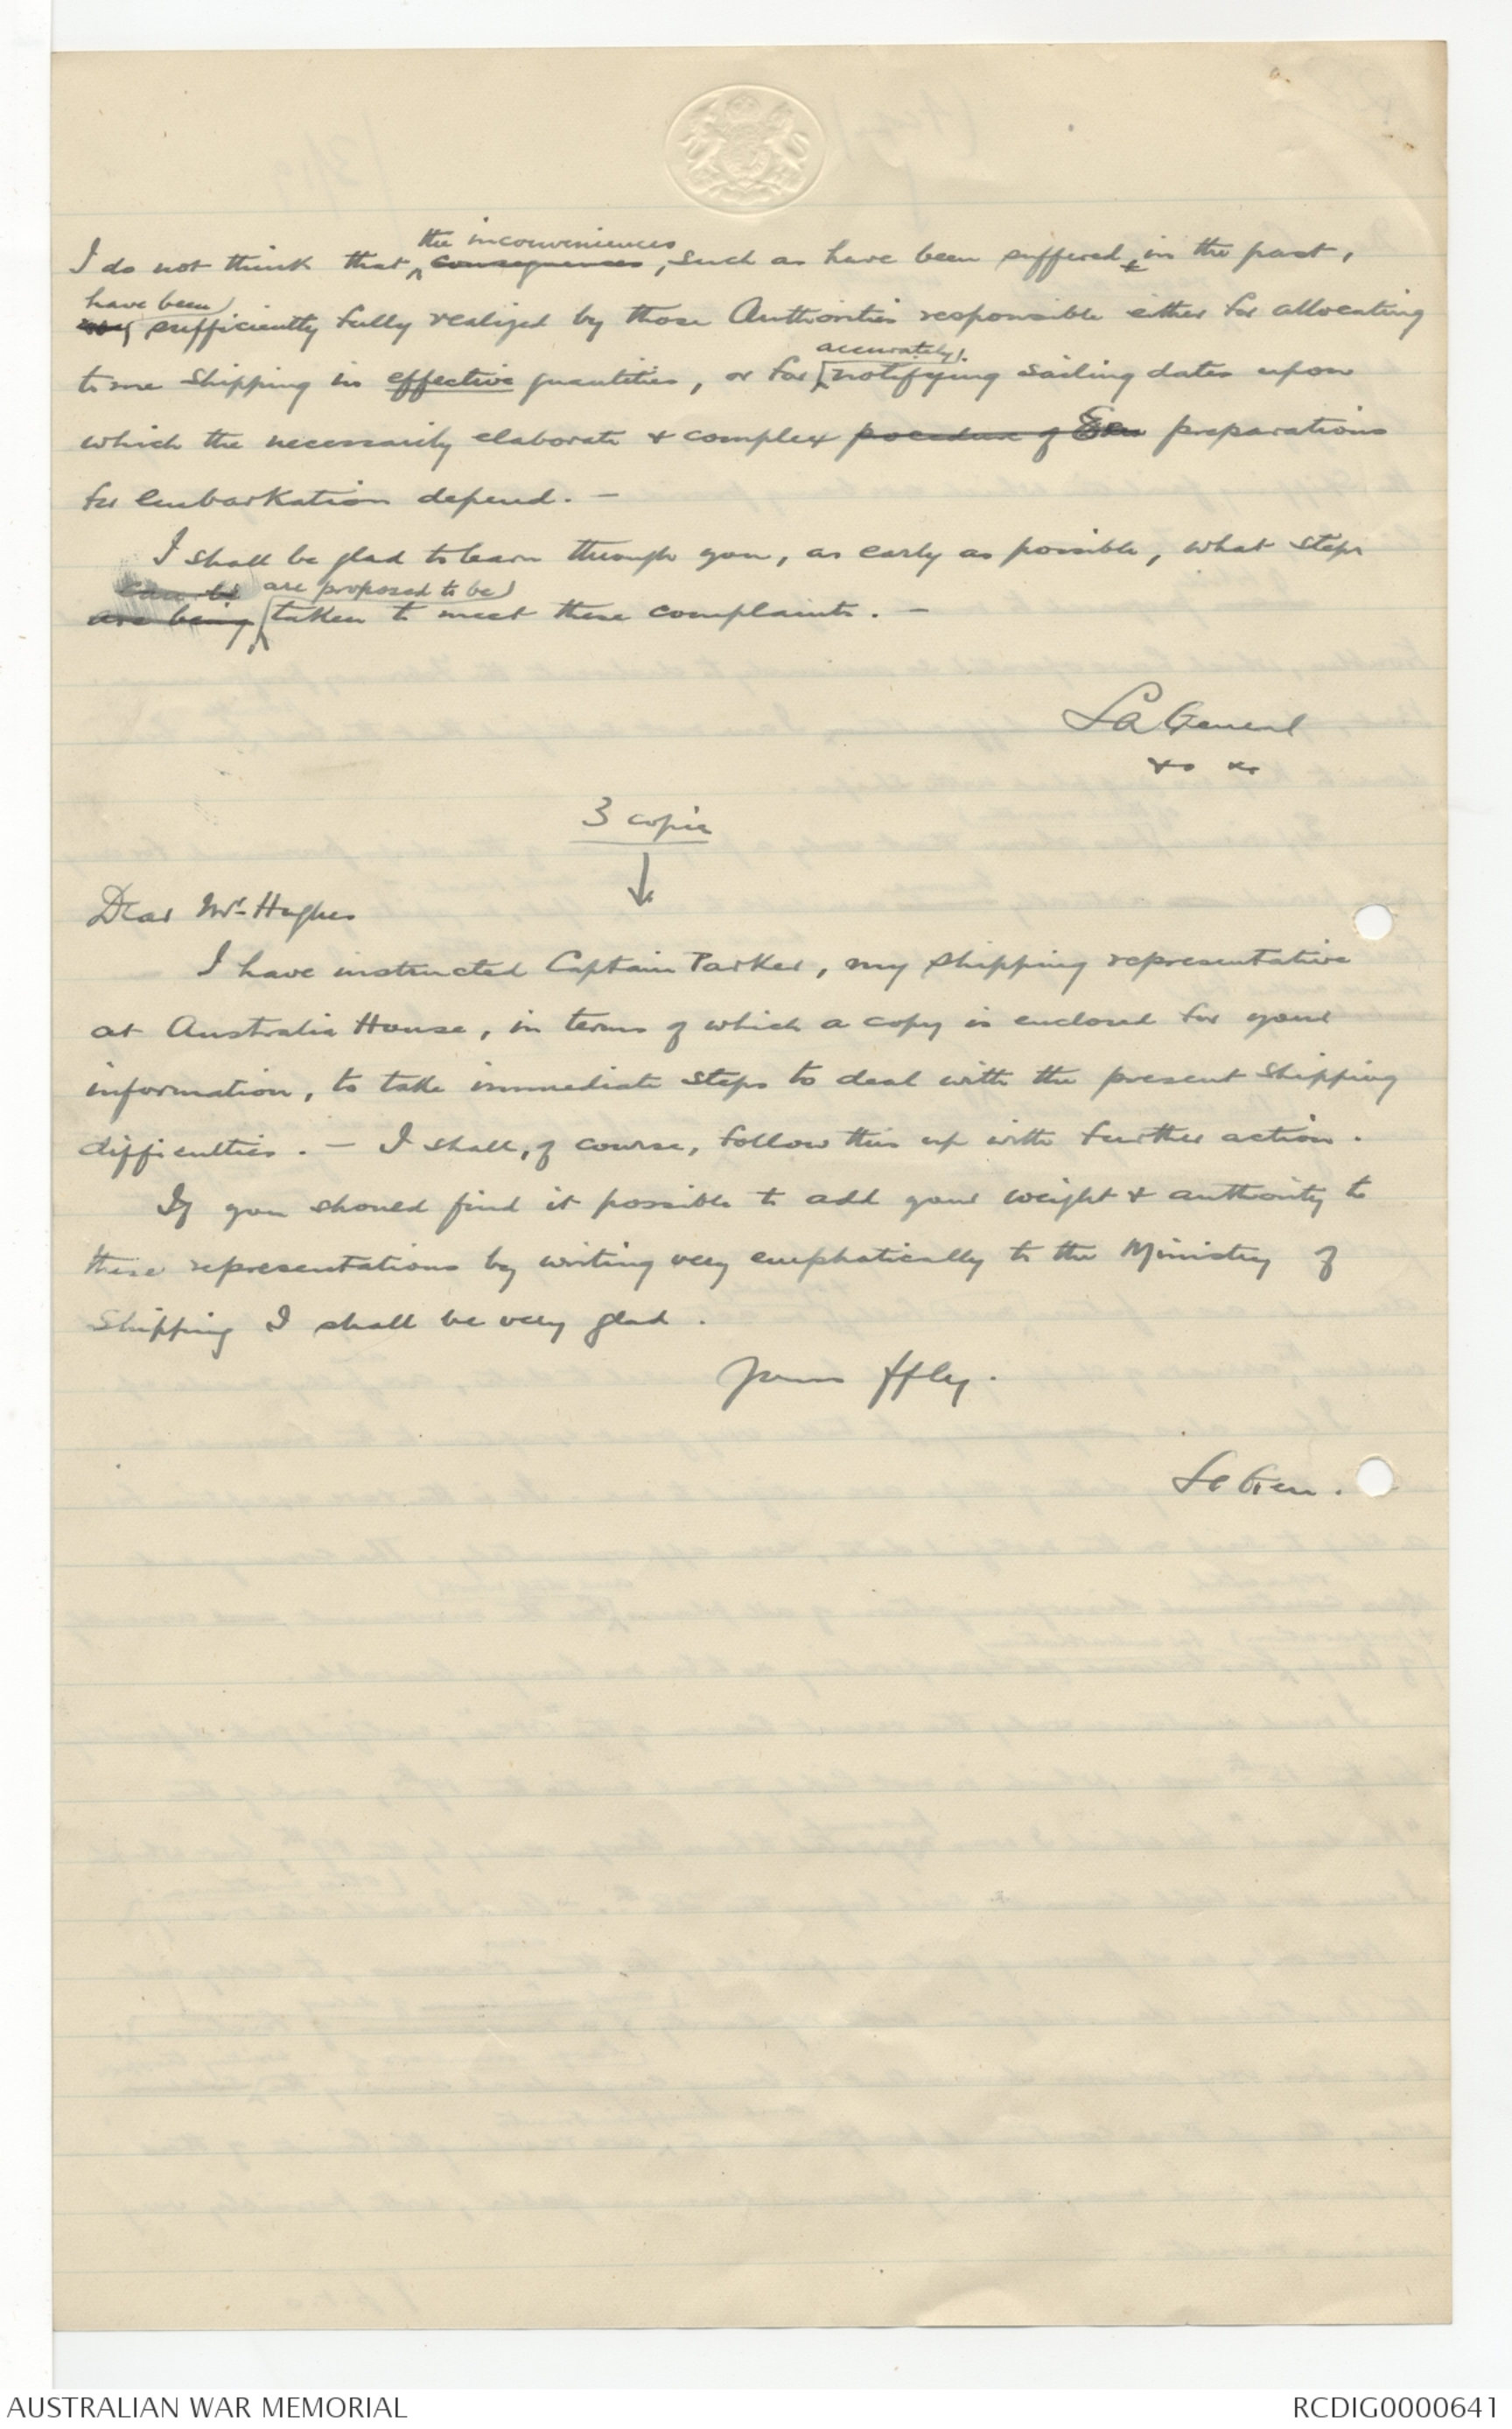 the inconveniences
I do not think that ^ consequences, such as have been suffered in the past,
have been
sufficiently fully realized by those Authorities responsible either for allocating
accurately
to me shipping in effective quantities, or for notifying sailing dates upon
which the necessarily elaborate & complex procedure of preparations
for embarkation depend. —
I shall be glad to learn through you, as early as possible, what steps
can be are proposed to be
are being taken to meet these complaints. —
General
3 copies
Dear Mr. Hughes
I have instructed Captain Parker, my shipping representative
at Australia House, in terms of which a copy is enclosed for your
information, to take immediate steps to deal with the present shipping
difficulties. — I shall, of course, follow this up with further action.
If you should find it possible to add your weight & authority to
these representations by writing very emphatically to the Ministry of
Shipping I shall be very glad.
Yours ffly.
Gen.
AUSTRALIAN WAR MEMORIAL
RCDIG0000641